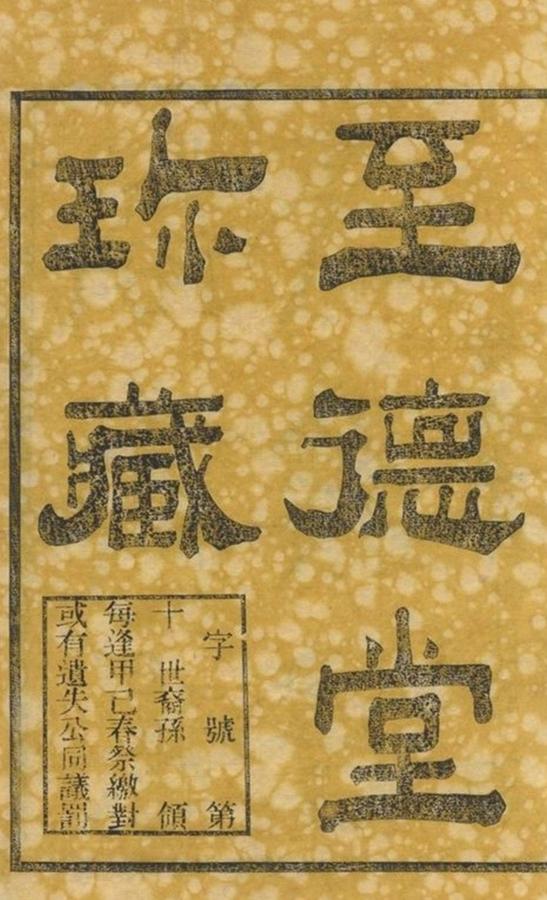 至德堂
珎藏
字號第
十世裔孫領
每逢甲己春祭繳對
或有遺失公同議罰